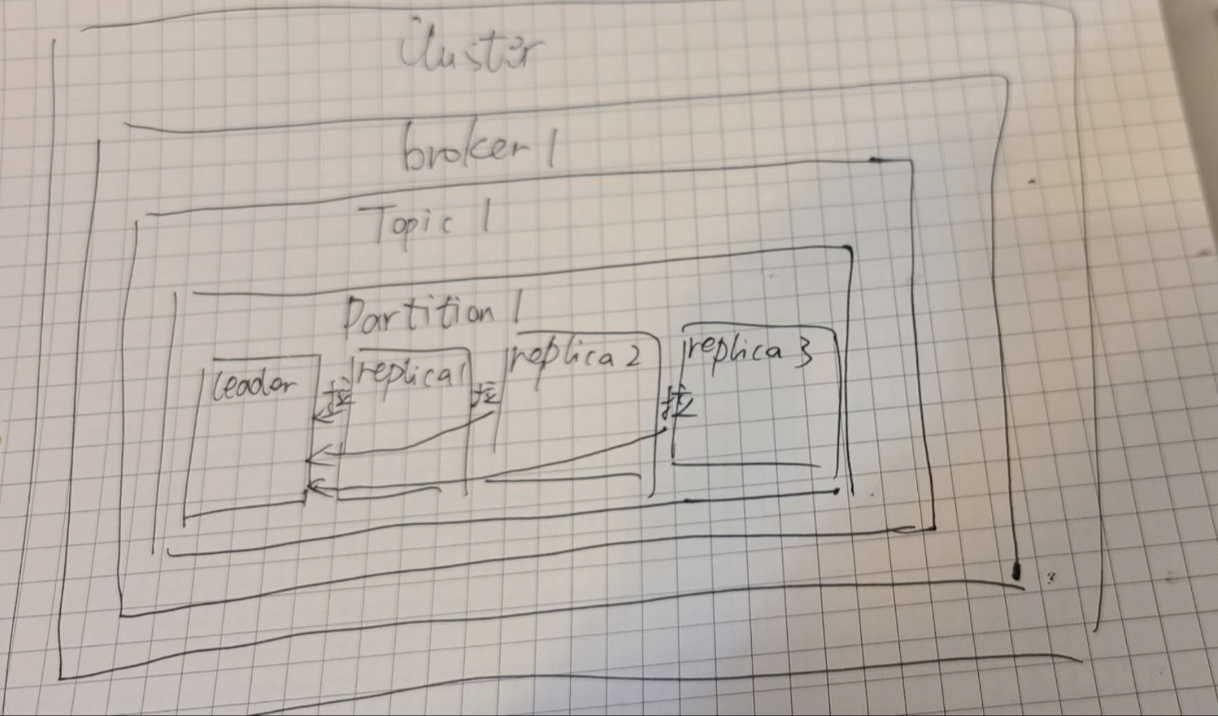 Cluster
broker 1
Topic 1
Partition 1
leader
拉
replica 1
拉
replica 2
拉
replica 3